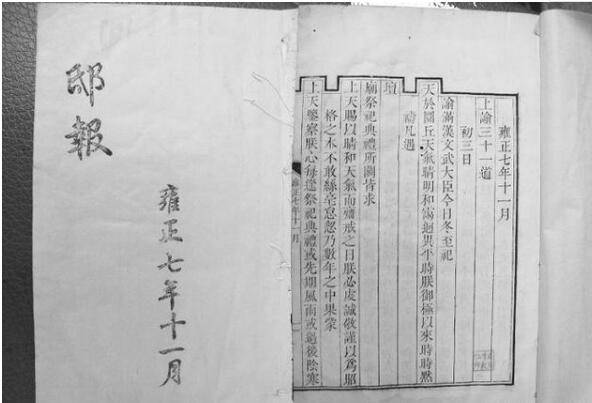 邸報
雍正七年十一月
雍正七年十一月
上諭三十一道
初三日
諭滿漢文武大臣今日冬至祀
天於圜丘天氣晴明和煦迥異平時朕御極以來時時默
禱凡遇
壇
廟祭祀典禮所關皆求
上天賜以晴和天氣而齋戒之日朕必虔誠敬謹以為昭
格之本不敢絲毫怠忽乃數年之中果蒙
上天鑒察朕心每逢祭祀典禮或先期風雨或過後陰寒
正七年十一月